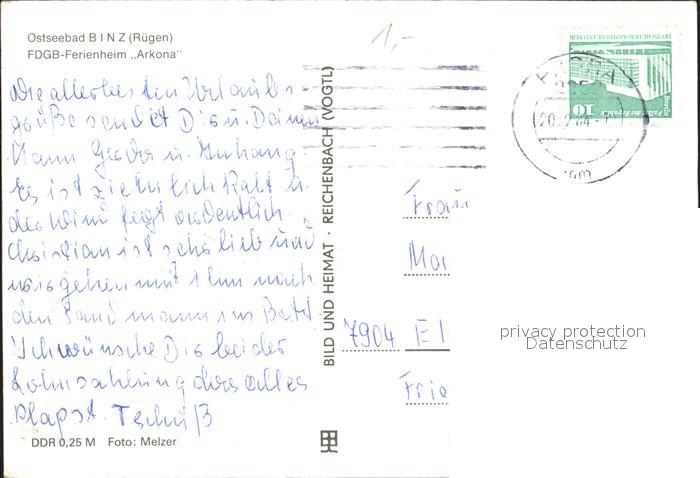 Ostseebad B I N Z (Rügen)
FDGB-Ferienheim „Arkona"
1,-
Die allerbesten Urlaubs-
grüße sendet Dir u. Deinem
Mann Gerda u. Anhang.
Es ist ziehmlich kalt u.
der Wind fegt ordentlich.
Christian ist sehr lieb und
wir gehen mit ihm nach
den Sandmann ins Bett.
Ich wünsche Dir bei der
Lohnzahlung das alles
klapst. Tschüß
DDR 0,25 M Foto: Melzer
BILD UND HEIMAT · REICHENBACH (VOGTL)
DEUTSCHE DEMOKRATISCHE REPUBLIK
Berlin, Palast der Republik
10
Frau
7904 El
Frie
privacy protection
Datenschutz